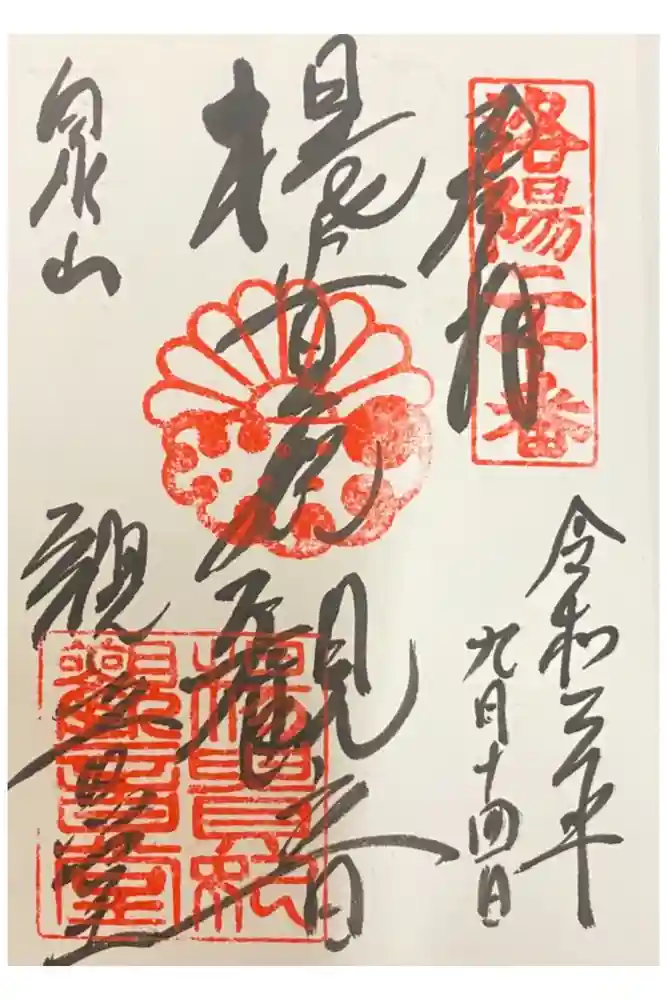 洛陽二十番
奉拝
令和二年
九月十四日
楊貴妃觀音
泉山
観音堂
楊貴妃
觀音堂